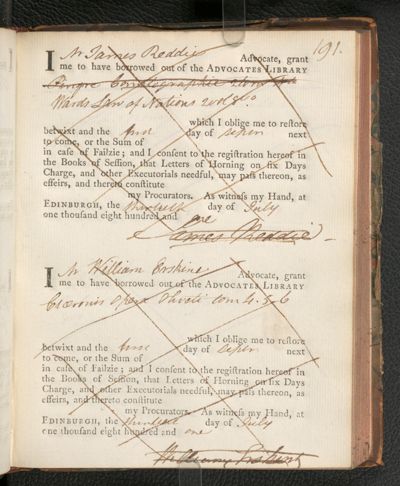 191.
I Mr James Reddie Advocate, grant
me to have borrowed out of the ADVOCATES LIBRARY
Wards Law of Nations 2 vol 8vo
which I oblige me to reſtore
betwixt and the first day of next
to come, or the Sum of
in caſe of Failzie; and I conſent to the regiſtration hereof in
the Books of Seſſion, that Letters of Horning on ſix Days
Charge, and other Executorials needful, may paſs thereon, as
effeirs, and thereto conſtitute
my Procurators. As witneſs my Hand, at
EDINBURGH, the thirtieth day of July
one thouſand eight hundred and one
James Reddie
I Mr William Erskine Advocate, grant
me to have borrowed out of the ADVOCATES LIBRARY
Ciceronis Opera Oliveti tom 4. 5. 6
which I oblige me to reſtore
betwixt and the first day of next
to come, or the Sum of
in caſe of Failzie; and I conſent to the regiſtration hereof in
the Books of Seſſion, that Letters of Horning on ſix Days
Charge, and other Executorials needful, may paſs thereon, as
effeirs, and thereto conſtitute
my Procurators. As witneſs my Hand, at
EDINBURGH, the thirtieth day of July
one thouſand eight hundred and one
William Erskine